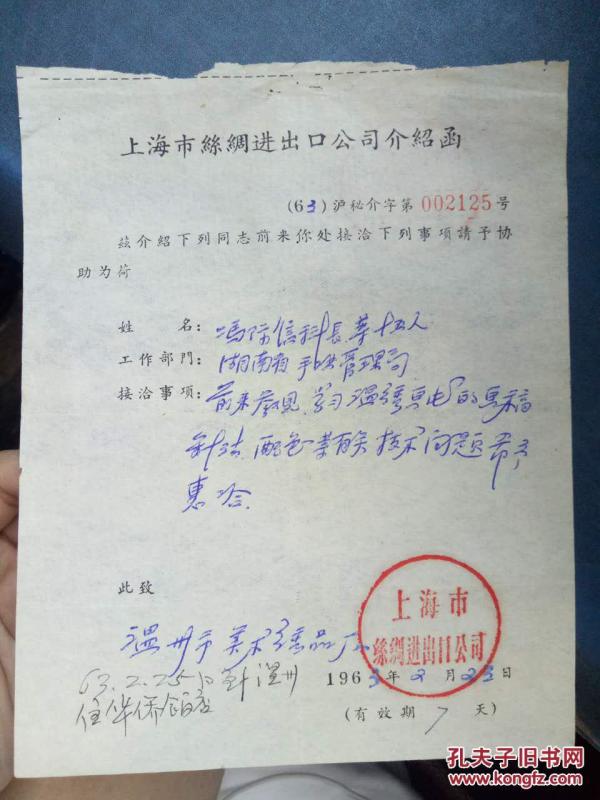 上海市絲綢进出口公司介紹函
(63)沪秘介字第002125号
茲介紹下列同志前来你处接洽下列事項請予协
助为荷
姓 名：馮 信科長等十五人
工作部門：湖南省手工业管理局
接洽事項：前来参观、学习温繡 的馬稿
针法、配色等有关技术问题希予
惠洽
此致
温州市美术繡品厂
上海市
絲綢進出口公司
1963年2月23日
(有效期7天)
63.2.25日到温州
住华侨飯店
孔夫子旧书网
www.kongfz.com